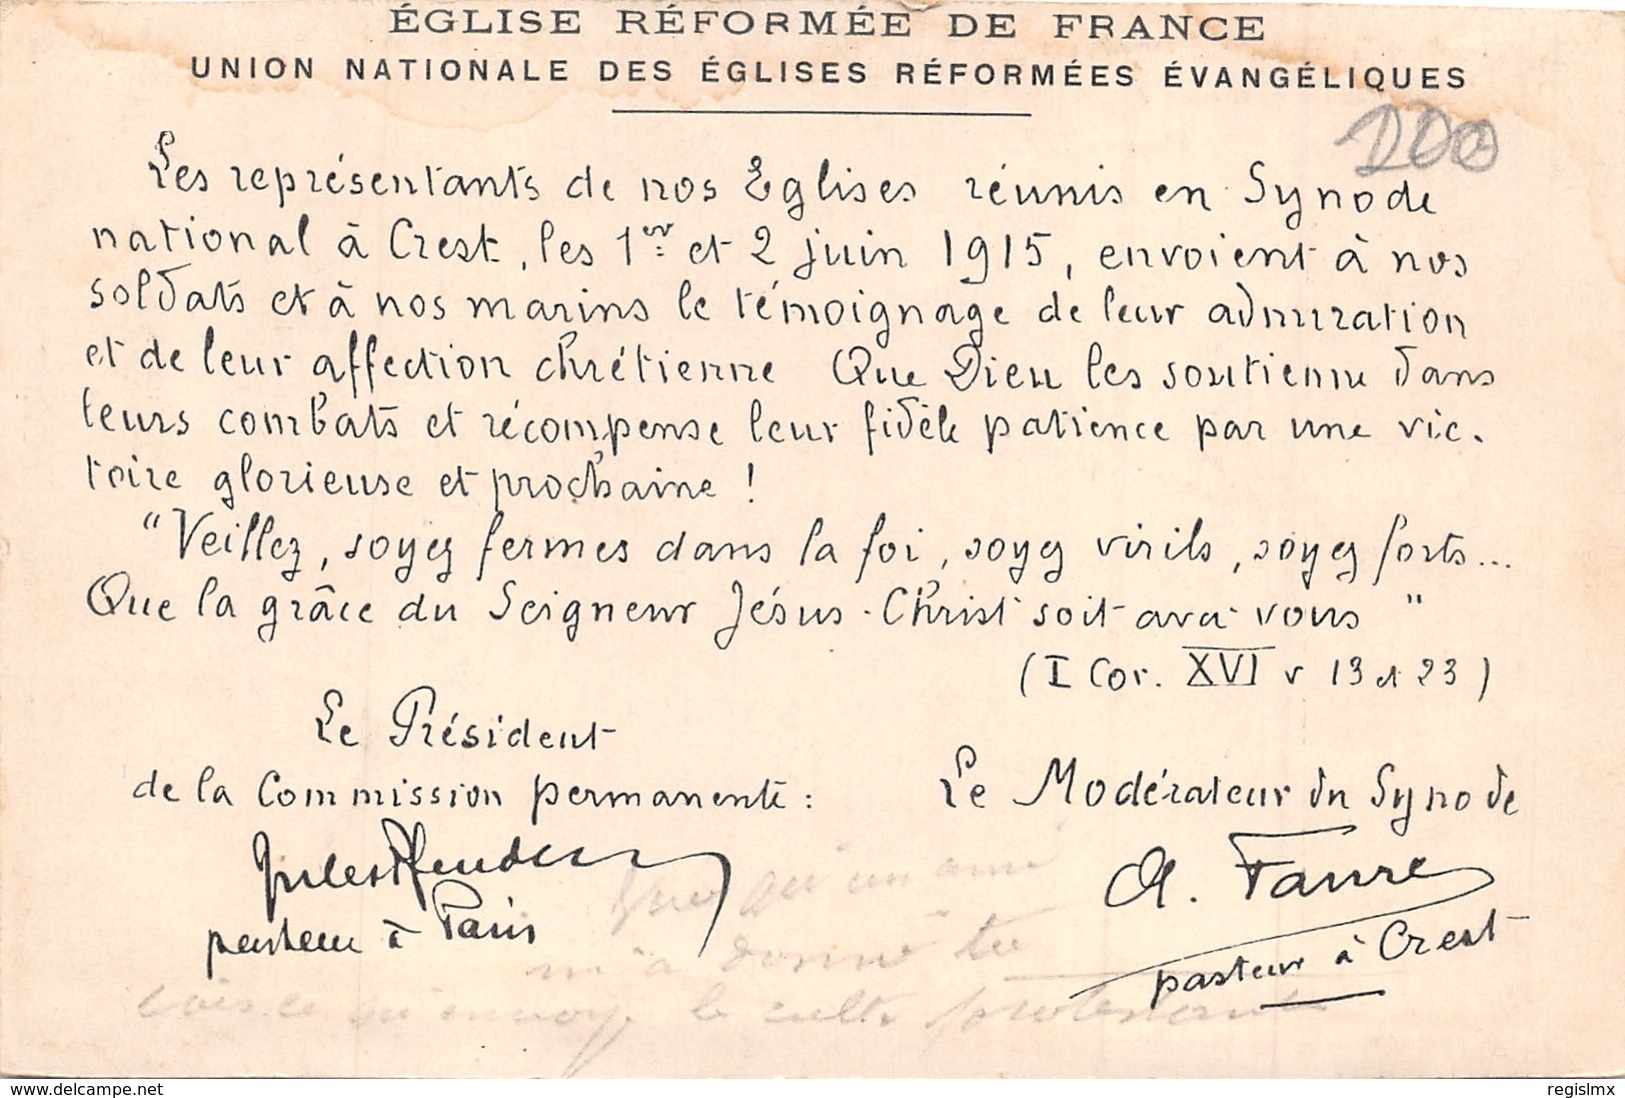 ÉGLISE RÉFORMÉE DE FRANCE
UNION NATIONALE DES ÉGLISES RÉFORMÉES ÉVANGÉLIQUES
200
Les représentants de nos Eglises réunis en Synode
national à Crest, les 1er et 2 juin 1915, envoient à nos
soldats et à nos marins le témoignage de leur admiration
et de leur affection chrétienne Que Dieu les soutienne dans
leurs combats et récompense leur fidèle patience par une vic-
toire glorieuse et prochaine !
"Veillez, soyez fermes dans la foi, soyez virils, soyez forts...
Que la grâce du Seigneur Jésus-Christ soit avec vous"
(I Cor. XVI v 13 et 23)
Le Président
de la Commission permanente :
Jules Pfender
pasteur à Paris
Le Modérateur du Synode
A. Faure
pasteur à Crest
qu'un ami
m'a donné tu
vois ce qu'envoye le culte protestant
www.delcampe.net
regislmx